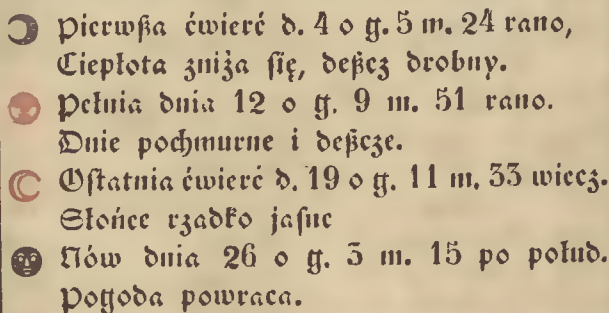 Pierwßa ćwierć d. 4 o g. 5 m. 24 rano,
Ciepłota zniża się, deßcz drobny.
Pełnia dnia 12 o g. 9 m. 51 rano.
Dnie pochmurne i deßcze.
Ostatnia ćwierć d. 19 o g. 11 m. 33 wiecz.
Słońce rzadko jasne
Nów dnia 26 o g. 3 m. 15 po połud.
Pogoda powraca.